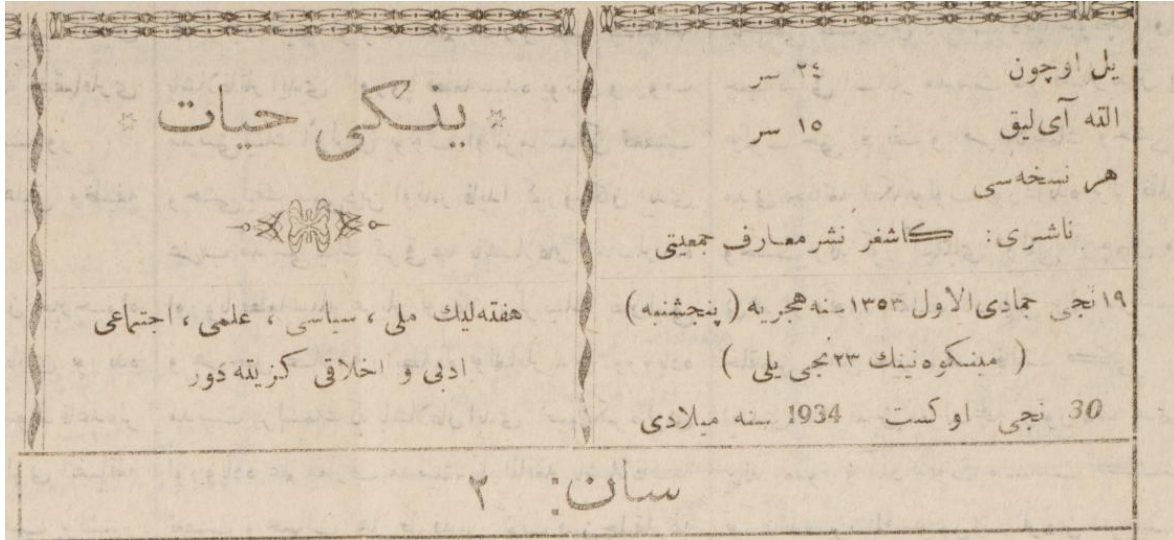 یل اوچون ٢٤ سر
التە آی لیق ١٥ سر
هر نسخەسی
ناشری: کاشغر نشر معارف جمعیتی
١٩نجی جمادی الاول ١٣٥٣سنە هجریە ( پنجشنبە )
( مینکوەنینك ٢٣نجی یلی )
30 نجی اوکست 1934 سنە میلادی
ینکی حیات
هفتەلیك ملی ، سیاسی ، علمی ، اجتماعی
ادبی و اخلاقی کزیتەدور
سان: ٢